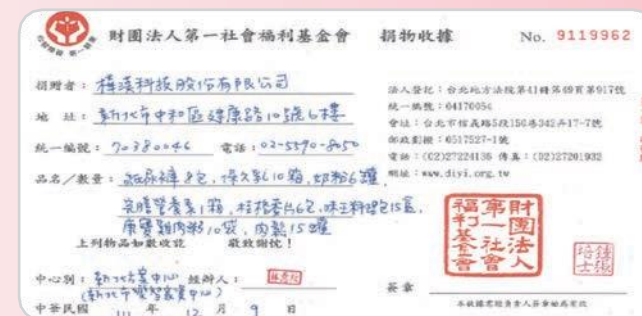 財團法人第一社會福利基金會 捐物收據 No. 9119962
捐贈者：樺漢科技股份有限公司
地 址：新北市中和區建康路10號6樓
統一編號：70380046 電話：02-5590-8050
品名／數量：紙尿褲8包，保久乳10箱，奶粉6罐，
營養素1箱，桂格麥片6包，味王料理包15盒，
康寶雞肉粥10袋，肉鬆15罐
上列物品如數收訖 敬致謝忱！
中心別：新北方案中心 經辦人：
中華民國 111 年 12 月 9 日
法人登記：台北地方法院第41冊第69頁第917號
統一編號：04170054
會址：台北市信義路5段150巷342弄17-7號
郵政劃撥：0517527-1號
電話：(02)27224136 傳真：(02)27201932
網址：www.diyi.org.tw
財團法人第一社會福利基金會
簽章
本收據需經負責人簽章始為有效